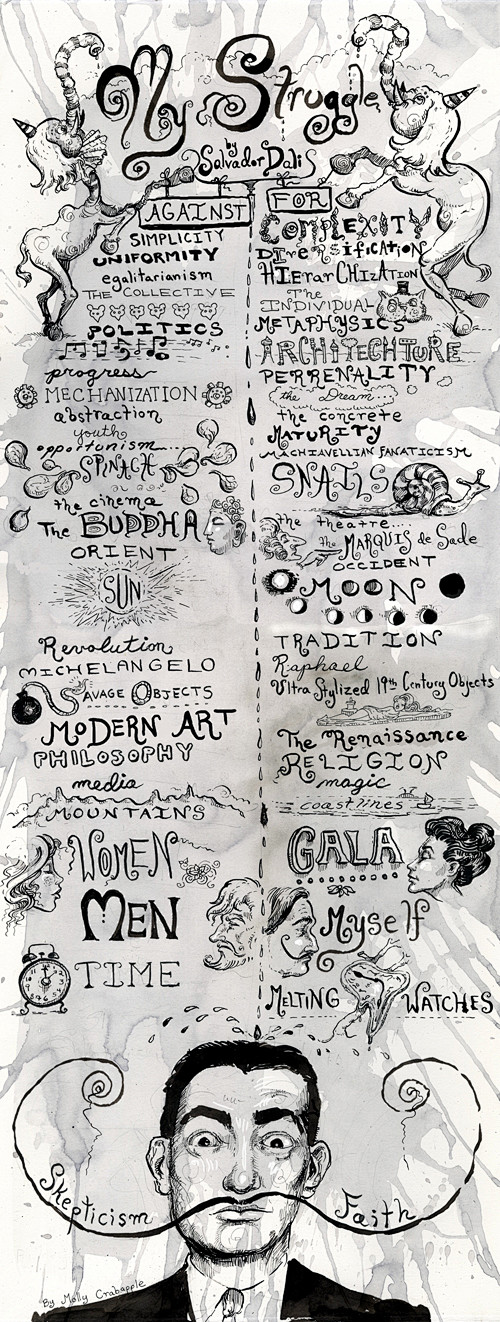 My Struggle
by
Salvador Dali
AGAINST
SIMPLICITY
UNIFORMITY
egalitarianism
THE COLLECTIVE
POLITICS
progress
MECHANIZATION
abstraction
youth
opportunism....
SPINACH
the cinema
The BUDDHA
ORIENT
SUN
Revolution
MICHELANGELO
SAVAGE OBJECTS
MODERN ART
PHILOSOPHY
media
MOUNTAINS
WOMEN
MEN
TIME
FOR
COMPLEXITY
DIVERSIFICATION
HIERARCHIZATION
The
INDIVIDUAL
METAPHYSICS
ARCHITECHTURE
PERRENALITY
the Dream...
the concrete
MATURITY
MACHIAVELLIAN FANATICISM
SNAILS
the theatre...
the MARQUIS de Sade
OCCIDENT
MOON
TRADITION
Raphael
Ultra Stylized 19th Century Objects
The Renaissance
RELIGION
magic
coastlines
GALA
Myself
MELTING WATCHES
Skepticism
Faith
By Molly Crabapple